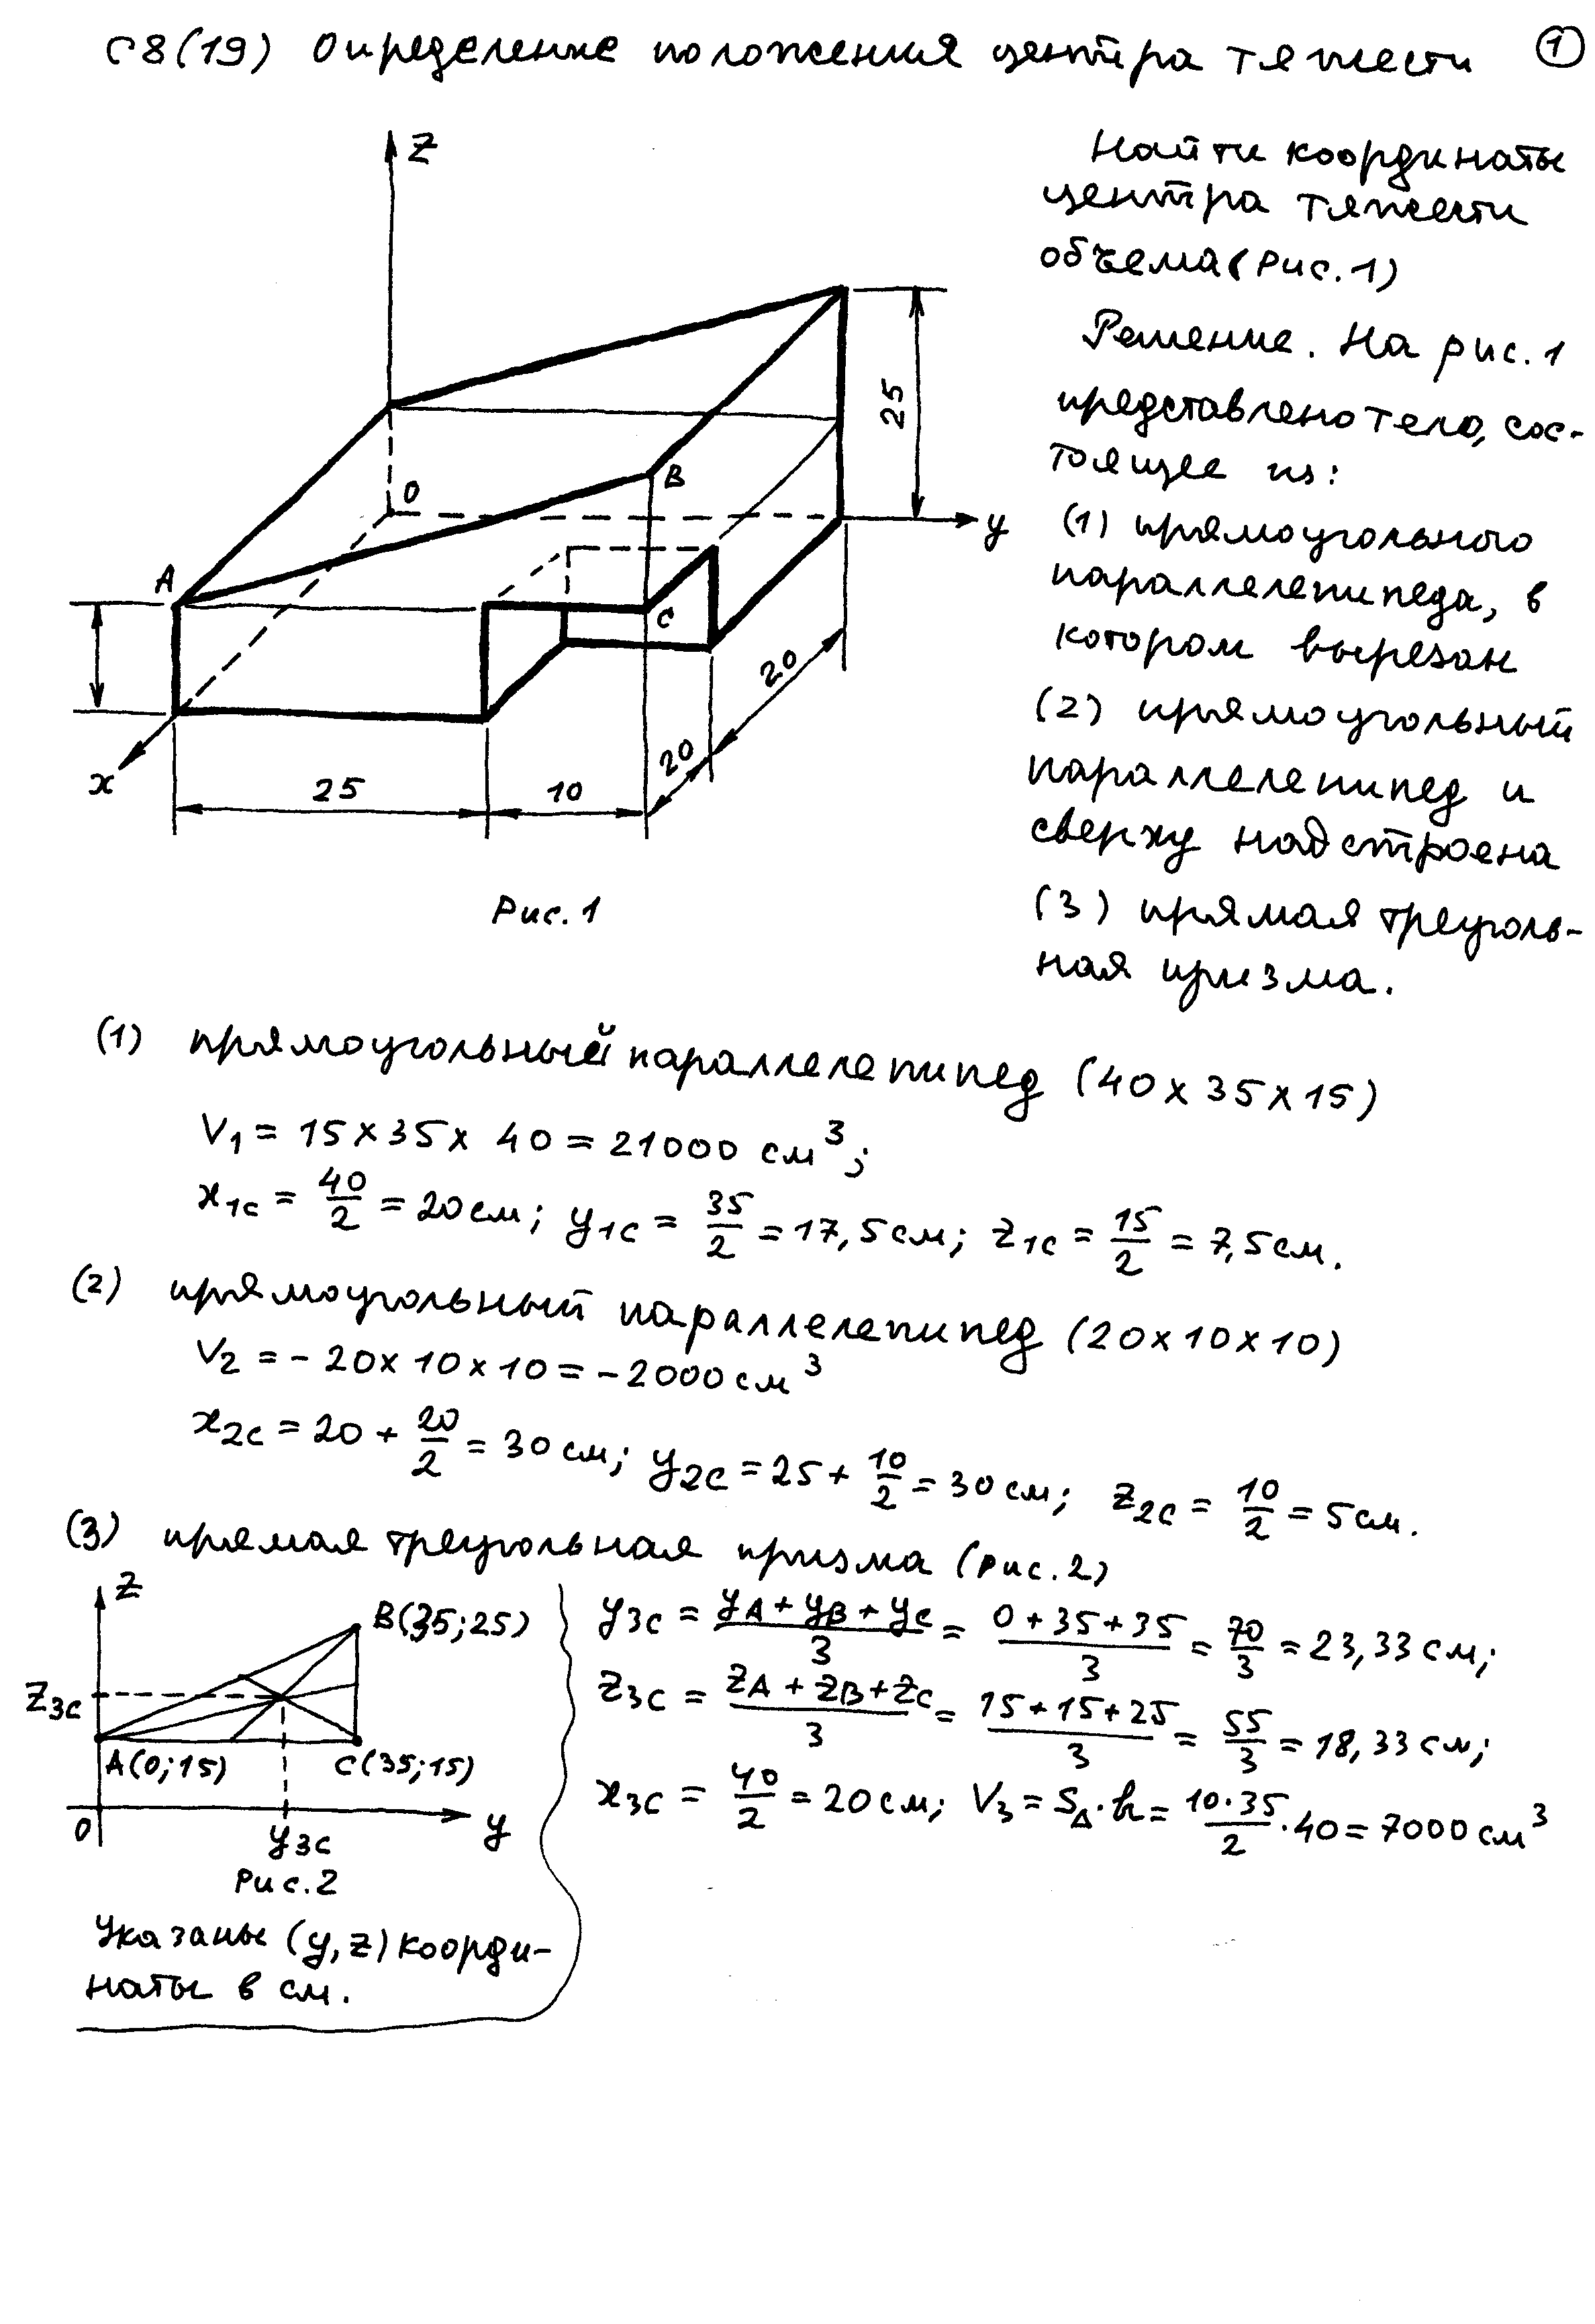 С8(19) Определение положения центра тяжести ①
Найти координаты
центра тяжести
объема (Рис.1)
Решение. На рис.1
представлено тело, сос-
тоящее из:
(1) прямоугольного
параллелепипеда, в
котором вырезан
(2) прямоугольный
параллелепипед и
сверху надстроена
(3) прямая треуголь-
ная призма.
z
25
B
O
y
A
C
20
20
x
25
10
Рис.1
(1) прямоугольный параллелепипед (40 x 35 x 15)
V₁ = 15 x 35 x 40 = 21000 см³;
x₁c = 40/2 = 20 см; y₁c = 35/2 = 17,5 см; z₁c = 15/2 = 7,5 см.
(2) прямоугольный параллелепипед (20 x 10 x 10)
V₂ = - 20 x 10 x 10 = - 2000 см³
x₂c = 20 + 20/2 = 30 см; y₂c = 25 + 10/2 = 30 см; z₂c = 10/2 = 5 см.
(3) прямая треугольная призма (рис.2)
z
B(35;25)
z₃c
A(0;15)
C(35;15)
0
y₃c
y
Рис.2
Указаны (y,z) коорди-
наты в см.
y₃c = (yA + yB + yC)/3 = (0 + 35 + 35)/3 = 70/3 = 23,33 см;
z₃c = (zA + zB + zC)/3 = (15 + 15 + 25)/3 = 55/3 = 18,33 см;
x₃c = 40/2 = 20 см; V₃ = S△·h = 10·35/2·40 = 7000 см³